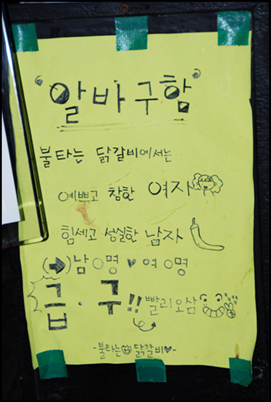 "알바구함"
불타는 닭갈비에서는
예쁘고 참한 여자
힘세고 성실한 남자
남 O명 ♥ 여 O명
급·구!! 빨리오삼
-불타는 닭갈비♥-